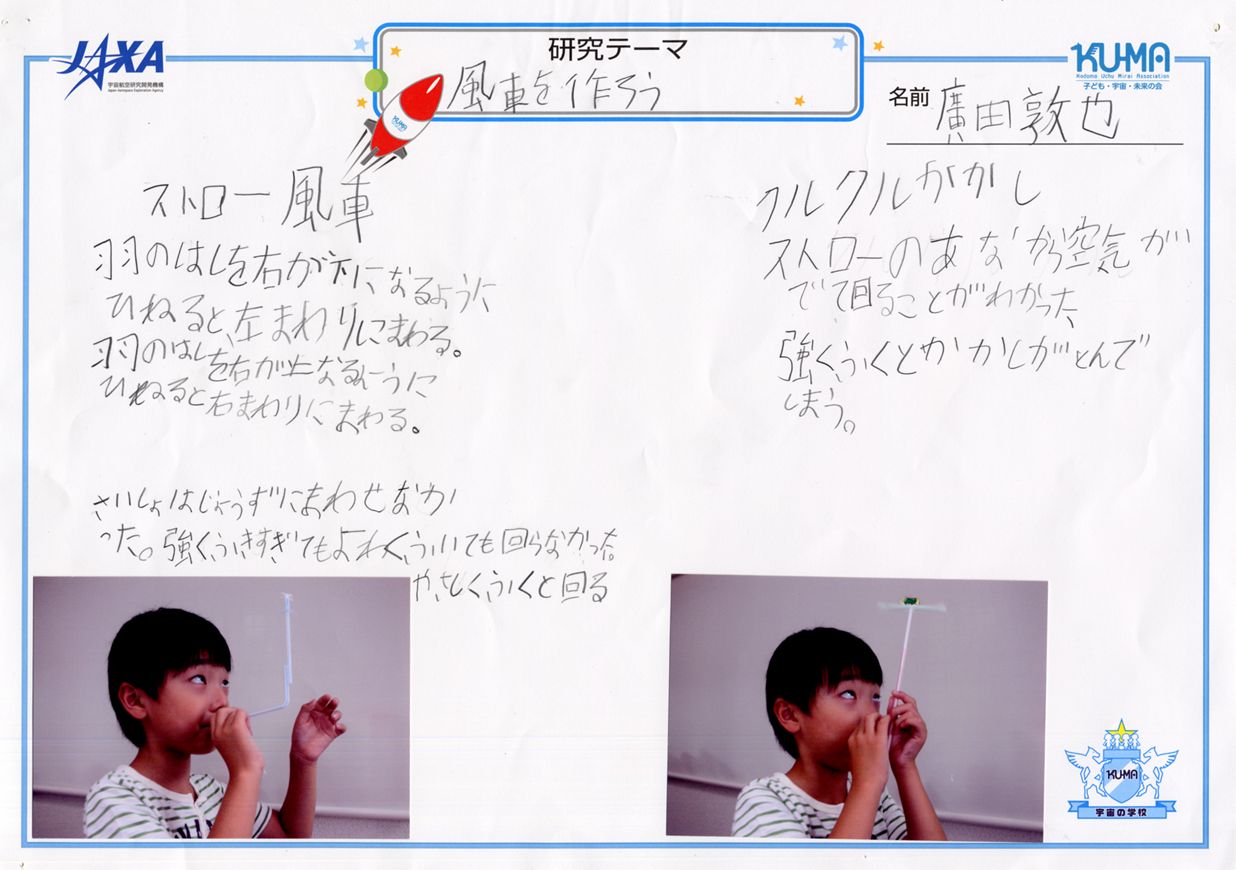 JAXA
宇宙航空研究開発機構
Japan Aerospace Exploration Agency
研究テーマ
風車を作ろう
KUMA
KU-MA
Kodomo Uchu Mirai Association
子ども・宇宙・未来の会
名前 廣田敦也
ストロー風車
羽のはしを右が下になるように
ひねると、左まわりにまわる。
羽のはしを右が上になるように
ひねると右まわりにまわる。
さいしょはじょうずにまわせなか
った。強くふきすぎてもよわくふいても回らなかった。
やさしくふくと回る
クルクルかかし
ストローのあなから空気が
でて回ることがわかった
強くふくとかかしがとんで
しまう。
KU-MA
宇宙の学校